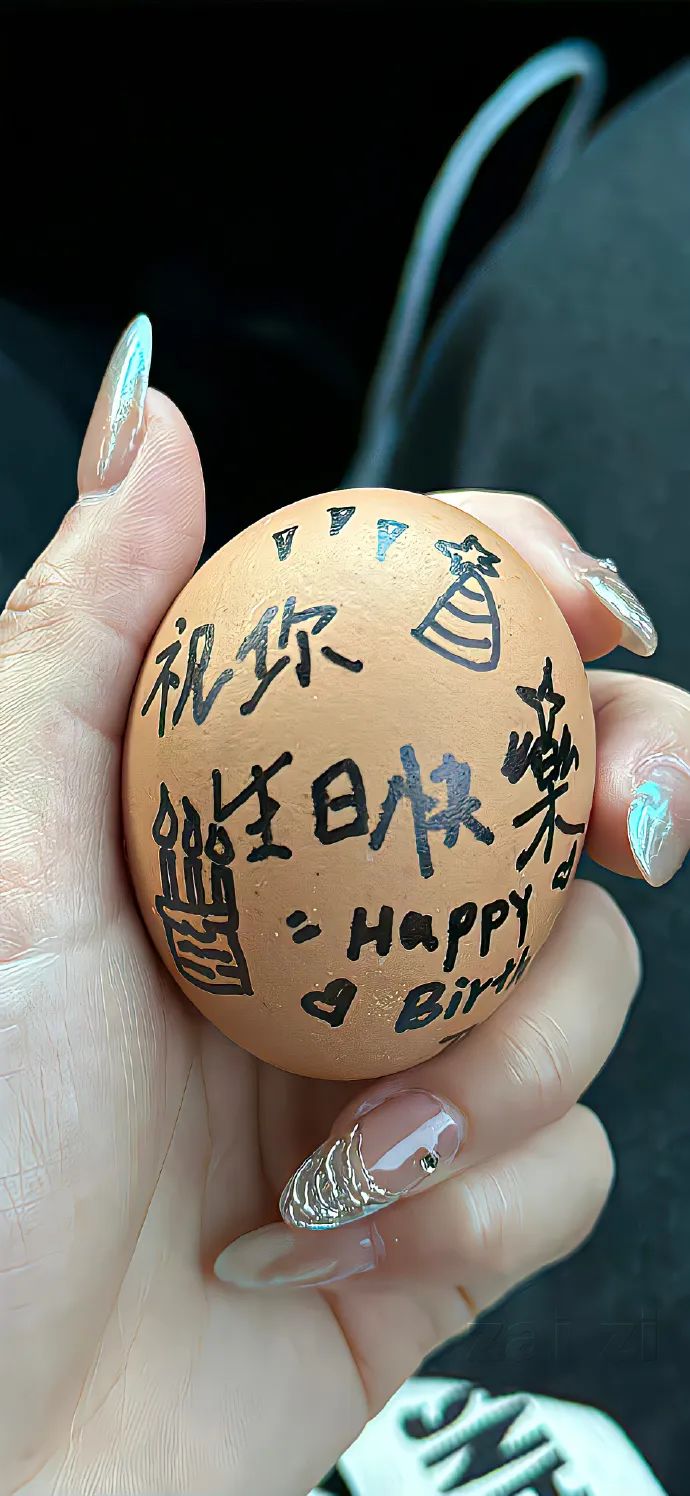 祝你
生日快樂
Happy
Birth
zai zi